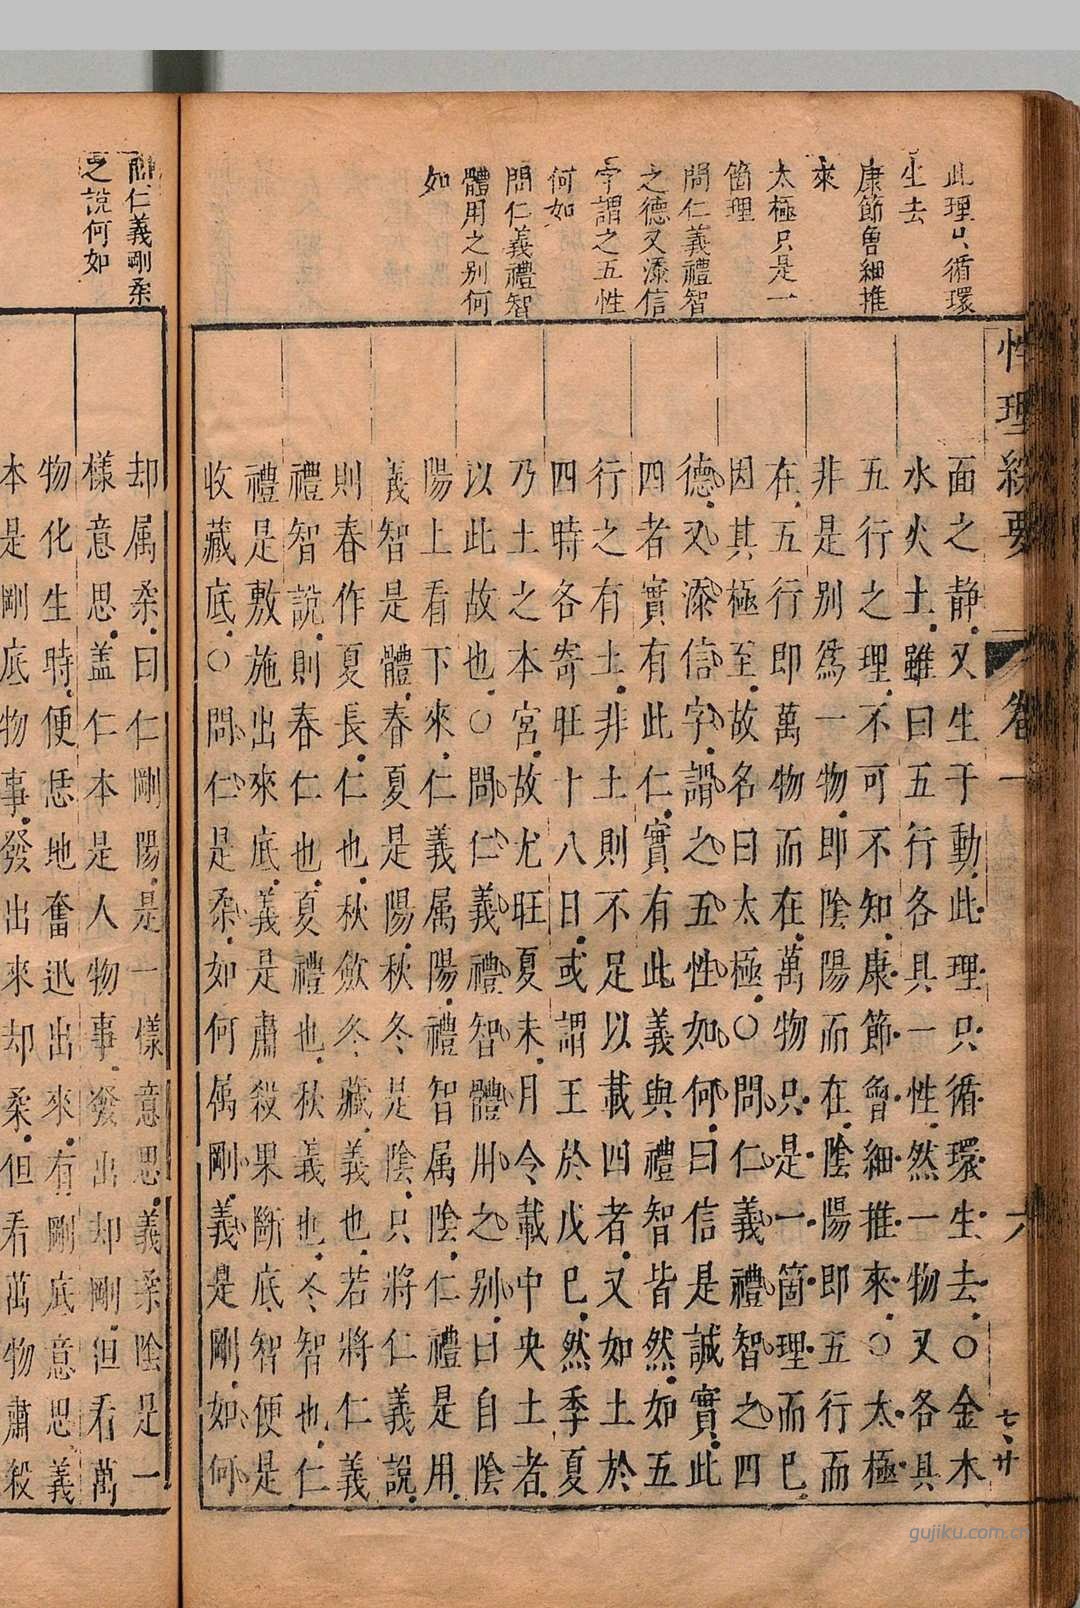 此理只循環
生去
康節曾細推
來
太極只是一
箇理
問仁義禮智
之德又添信
字謂之五性
何如
問仁義禮智
體用之別何
如
性理綜要
卷一
七、廿
面之静又生于動此理只循環生去○金木
水火土雖曰五行各具一性然一物又各具
五行之理不可不知康節曾細推來○太極
非是别爲一物即隂陽而在隂陽即五行而
在五行即萬物而在萬物只是一箇理而已
因其極至故名曰太極○問仁義禮智之四
德又添信字謂之五性如何曰信是誠實此
四者實有此仁實有此義與禮智皆然如五
行之有土非土則不足以載四者又如土於
四時各寄旺十八日或謂王於戊已然季夏
乃土之本宮故尤旺夏未月令載中央土者
以此故也○問仁義禮智體用之别曰自隂
陽上看下來仁義属陽禮智属隂仁禮是用
義智是體春夏是陽秋冬是隂只將仁義說
則春作夏長仁也秋歛冬藏義也若將仁義
禮智說則春仁也夏禮也秋義也冬智也仁
禮是敷施出來底義是肅殺果斷底智便是
收藏底○問仁是柔如何属剛義是剛如何
問仁義剛柔
之說何如
却属柔曰仁剛陽是一樣意思義柔隂是一
樣意思盖仁本是人物事發出却剛但看萬
物化生時便恁地奮迅出來有剛底意思義
本是剛底物事發出來却柔但看萬物肅殺
gujiku.com.cn